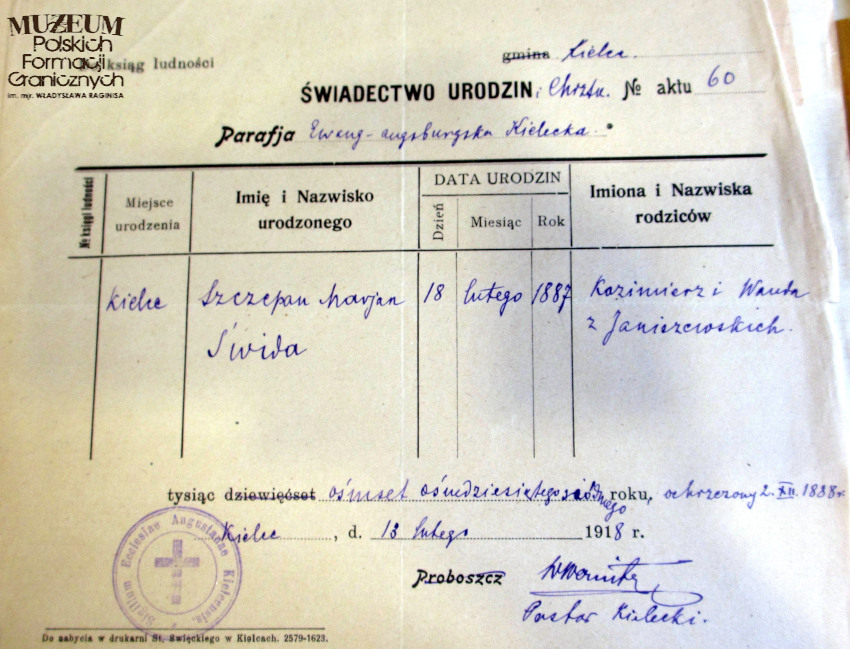 MUZEUM
Polskich
Formacji
Granicznych
im. mjr. WŁADYSŁAWA RAGINISA
ksiąg ludności
gmina Kielce.
ŚWIADECTWO URODZIN i Chrztu. № aktu 60
Parafja Ewang-augsburgska Kielecka.
№ księgi ludności
Miejsce urodzenia
Imię i Nazwisko urodzonego
DATA URODZIN
Dzień
Miesiąc
Rok
Imiona i Nazwiska rodziców
Kielce
Szczepan Marjan
Świda
18
lutego
1887
Kazimierz i Wanda
z Janiszewskich.
tysiąc dziewięćset ośmset ośmdziesiątego siódmego roku, ochrzczony 2. XII. 1888 r.
Kielce, d. 13 lutego 1918 r.
Proboszcz
Pastor Kielecki.
Sigillum Ecclesiae Augustanae Kielcensis.
Do nabycia w drukarni St. Święckiego w Kielcach. 2579-1623.